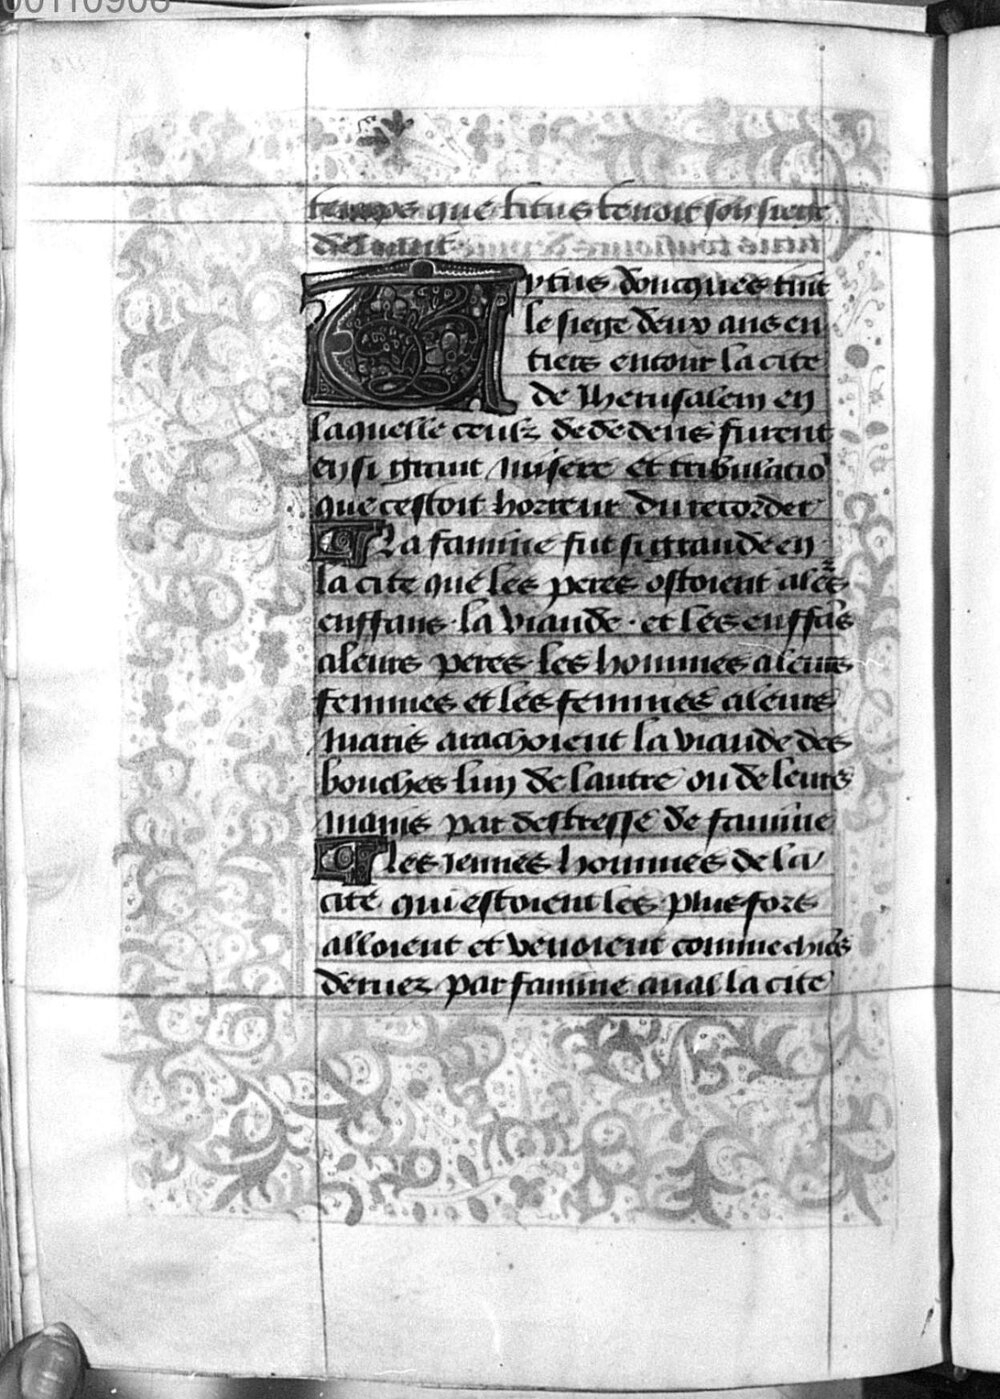 00110906
temps que titus tenoit son siege
deuant
Tytus doncques tint
le siege deux ans en
tiers entour la cite
de Jherusalem en
laquelle ceulz de dedens furent
en si grant misere et tribulatio
que cestoit horreur du recorder
La famine fut si grande en
la cite que les peres ostoient a lers
enffans la viande · et les enffas
a leurs peres les hommes a leurs
femmes et les femmes a leurs
maris arachoient la viande des
bouches lun de lautre ou de leurs
mains par destresse de famine
les jeunes hommes de la
cite qui estoient les plus fors
alloient et venoient comme chies
deruez par famine aual la cite